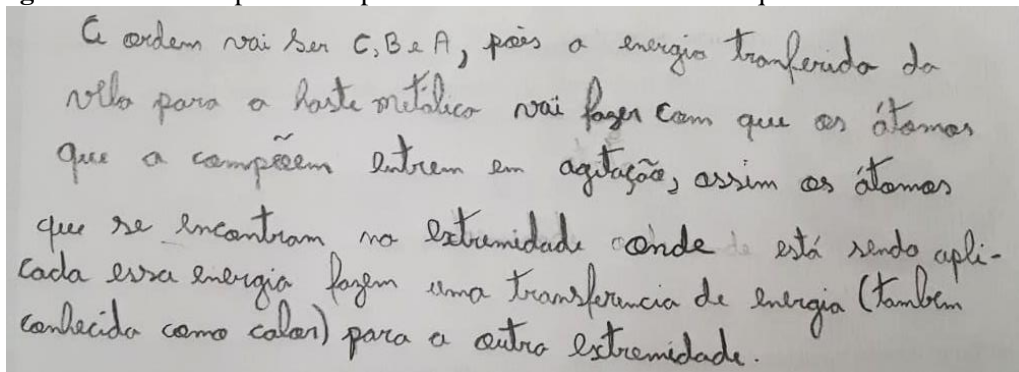 A ordem vai ser C, B e A, pois a energia tranferida da
vela para a haste metálica vai fazer com que os átomos
que a compõem entrem em agitação, assim os átomos
que se encontram na extremidade onde está sendo apli-
cada essa energia fazem uma transferencia de energia (também
conhecida como calor) para a outra extremidade.